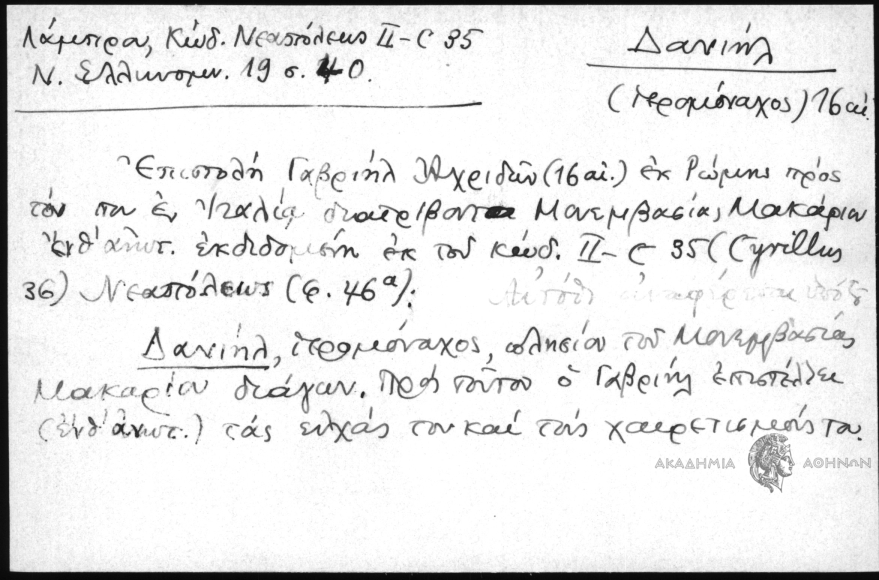 Λάμπρου, Κώδ. Νεαπόλεως II-C 35
Ν. Ἑλληνομν. 19 σ. 40.
Δανιήλ
(ἱερομόναχος) 16 αἰ.
Ἐπιστολὴ Γαβριὴλ Ἀχριδῶν (16 αἰ.) ἐκ Ῥώμης πρὸς
τὸν που ἐν Ἰταλίᾳ διατρίβοντα Μονεμβασίας Μακάριον
ἐνθ' ἀνωτ. ἐκδιδομένη ἐκ τοῦ κώδ. II-C 35 (Cyrillus
36) Νεαπόλεως (φ. 46α):
Δανιήλ, ἱερομόναχος, πλησίον τοῦ Μονεμβασίας
Μακαρίου διάγων. Πρὸς τοῦτον ὁ Γαβριὴλ ἐπιστέλλει
(ἐνθ' ἀνωτ.) τὰς εὐχάς του καὶ τοὺς χαιρετισμούς του.
ΑΚΑΔΗΜΙΑ ΑΘΗΝΩΝ